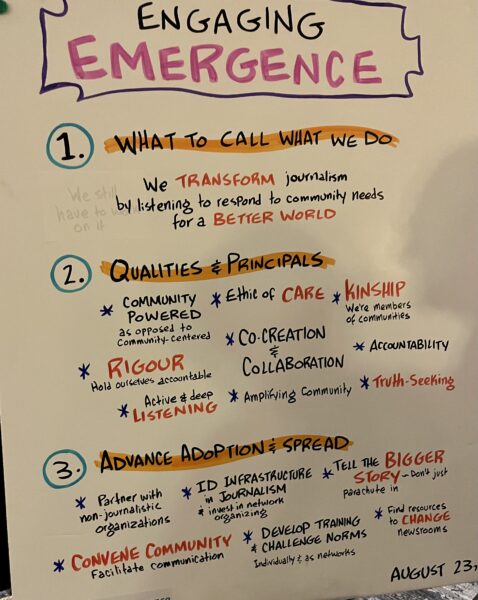 ENGAGING
EMERGENCE
1. WHAT TO CALL WHAT WE DO
We still
have to
on it
We TRANSFORM journalism
by listening to respond to community needs
for a BETTER WORLD
2. QUALITIES & PRINCIPALS
* COMMUNITY
POWERED
as opposed to
Community-centered
* Ethic of CARE
* KINSHIP
We're members
of communities
* RIGOUR
Hold ourselves accountable
* CO-CREATION
&
COLLABORATION
* ACCOUNTABILITY
* Active & deep
LISTENING
* Amplifying Community
* Truth-Seeking
3. ADVANCE ADOPTION & SPREAD
* Partner with
non-journalistic
organizations
* ID INFRASTRUCTURE
in JOURNALISM
& invest in network
organizing
* TELL THE BIGGER
STORY - Don't just
parachute in
* CONVENE COMMUNITY
Facilitate communication
* DEVELOP TRAINING
& CHALLENGE NORMS
Individually & as networks
* Find resources
to CHANGE
newsrooms
AUGUST 23,